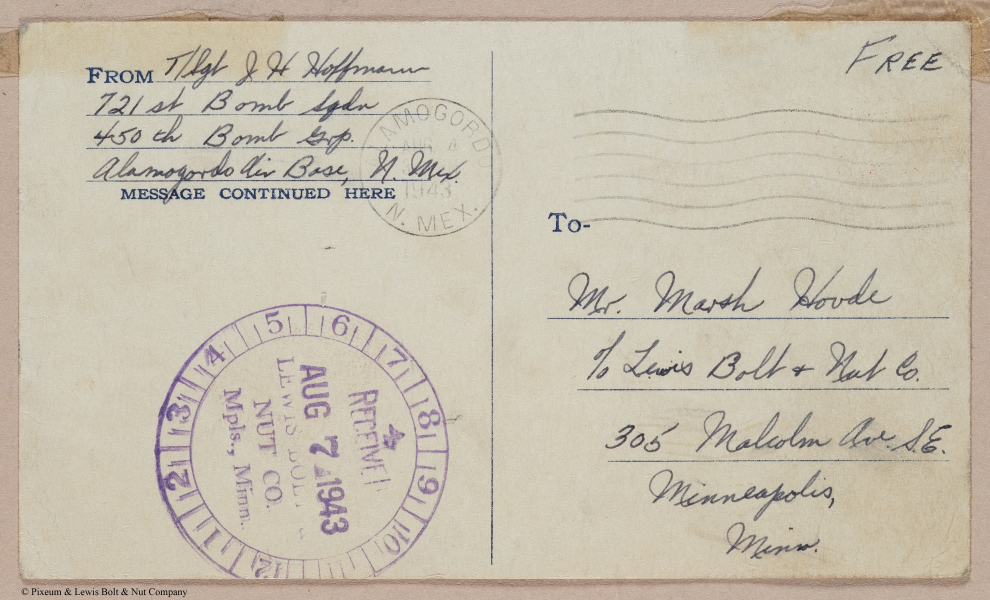 FROM T/Sgt J H Hoffmann
721st Bomb Sqdn
450th Bomb Grp.
Alamogordo Air Base, N. Mex.
MESSAGE CONTINUED HERE
ALAMOGORDO
AUG 4
1943
N. MEX.
FREE
To-
Mr. Marsh Hovde
c/o Lewis Bolt & Nut Co.
305 Malcolm Ave. S.E.
Minneapolis,
Minn.
1 2 3 4 5 6 7 8 9 10 11 12
RECEIVED
AUG 7 1943
LEWIS BOLT
NUT CO.
Mpls., Minn.
© Pixeum & Lewis Bolt & Nut Company